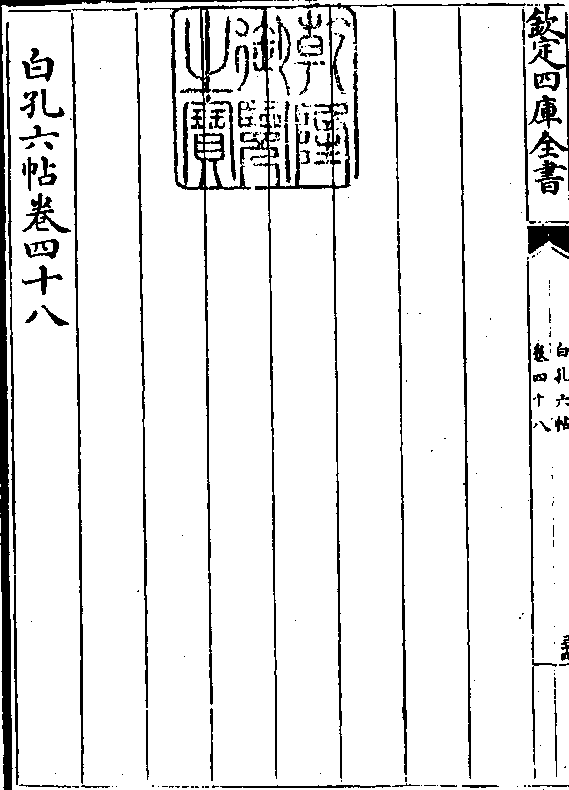 欽定四庫全書
白孔六帖
卷四十八
乾隆
御覽
之寶
白孔六帖卷四十八